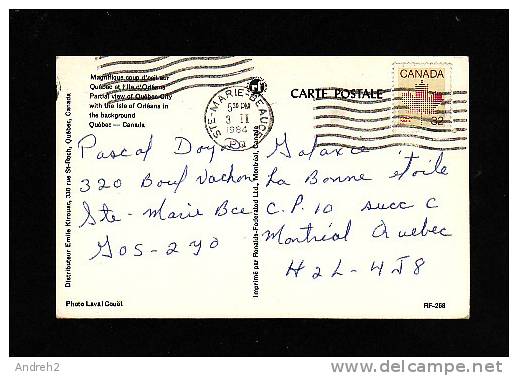 Magnifique coup d'oeil sur
Québec et l'Ile d'Orléans
Partial view of Québec City
with the Isle of Orléans in
the background
Québec — Canada
CARTE POSTALE
CANADA
32
STE-MARIE-BEAUCE
PM
3 II
1984
PQ
Pascal Doyon
320 Boul Vachon
Ste-Marie Bce
G0S-2Y0
Galaxie
La Bonne étoile
C.P. 10 succ C
Montréal Quebec
H2L-4J8
Distributeur Emile Kirouac, 338 rue St-Roch, Québec, Canada
Imprimé par Ronalds-Federated Ltd., Montréal, Canada
Photo Laval Couët
RF-268
Andreh2
www.delcampe.net